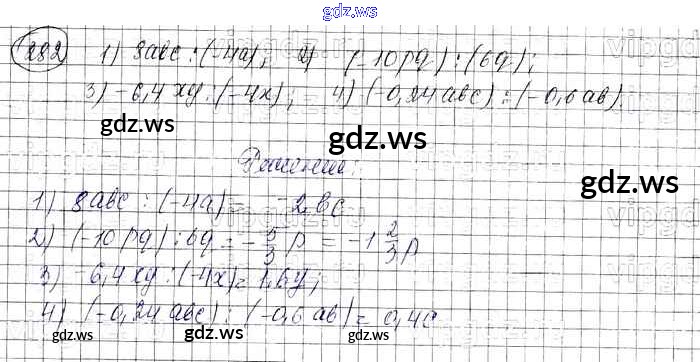 gdz.ws
282 1) 8abc : (-4a); 2) (-10pq) : (6q);
3) -6,4xy : (-4x); 4) (-0,24abc) : (-0,6ab).
gdz.ws gdz.ws gdz.ws
Решение:
1) 8abc : (-4a) = -2bc
2) (-10pq) : 6q = -5/3 p = -1 2/3 p
3) -6,4xy : (-4x) = 1,6y;
4) (-0,24abc) : (-0,6ab) = 0,4c
gdz.ws gdz.ws gdz.ws